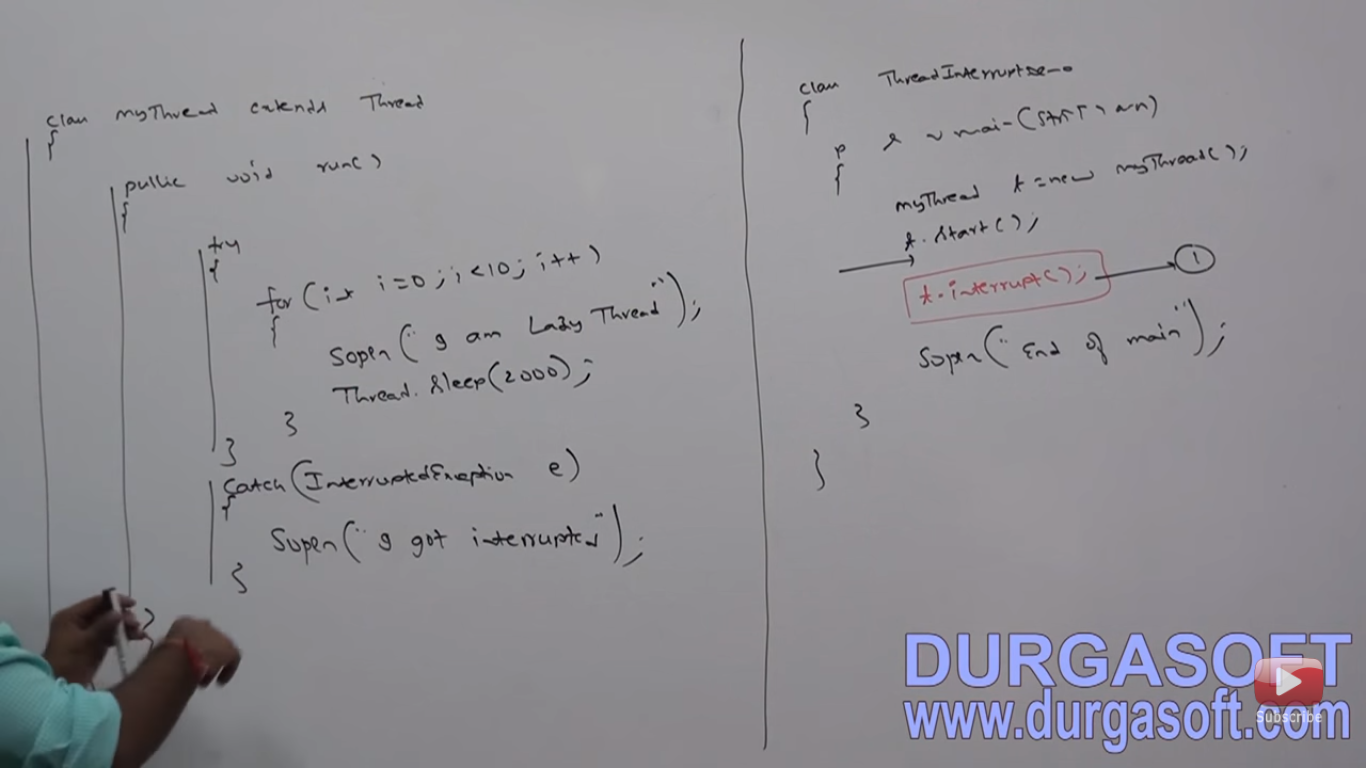 class myThread extends Thread
{
public void run()
{
try
{
for (int i=0; i<10; i++)
{
Sopln("I am Lazy Thread");
Thread.sleep(2000);
}
}
catch(InterruptedException e)
{
Sopln("I got interrupted");
}
}
class ThreadInterruptDemo
{
p s v main(String[] args)
{
myThread t = new myThread();
t.start();
t.interrupt();
1
Sopln("End of main");
}
}
DURGASOFT
www.durgasoft.com
Subscribe